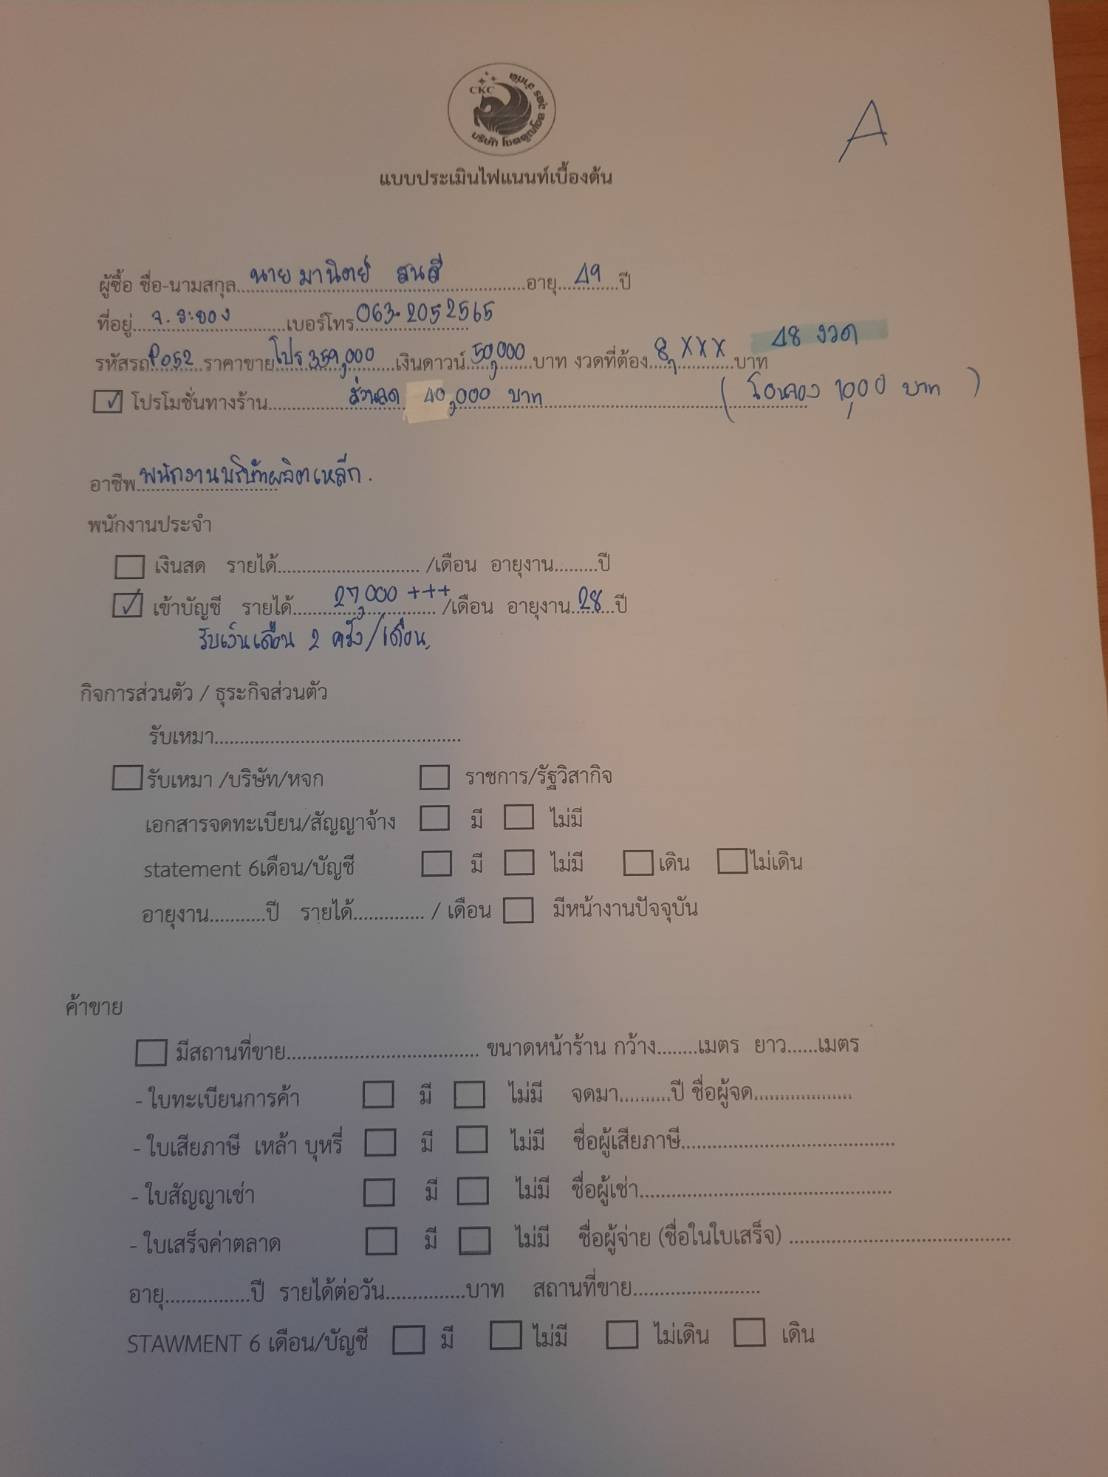 CKC
แบบประเมินไฟแนนท์เบื้องต้น
A
ผู้ซื้อ ชื่อ-นามสกุล นาย มานิตย์ สนสี อายุ 49 ปี
ที่อยู่ จ.ระยอง เบอร์โทร 063-2052565
รหัสรถ P052 ราคาขาย โปร 359,000 เงินดาวน์ 50,000 บาท งวดที่ต้อง 8,xxx บาท 48 งวด
โปรโมชั่นทางร้าน ส่วนลด 40,000 บาท ( โอนจอง 1,000 บาท )
อาชีพ พนักงานบริษัทผลิตเหล็ก.
พนักงานประจำ
เงินสด รายได้ /เดือน อายุงาน ปี
เข้าบัญชี รายได้ 27,000 +++ /เดือน อายุงาน 28 ปี
รับเงินเดือน 2 ครั้ง/เดือน
กิจการส่วนตัว / ธุระกิจส่วนตัว
รับเหมา
รับเหมา /บริษัท/หจก ราชการ/รัฐวิสากิจ
เอกสารจดทะเบียน/สัญญาจ้าง มี ไม่มี
statement 6เดือน/บัญชี มี ไม่มี เดิน ไม่เดิน
อายุงาน ปี รายได้ / เดือน มีหน้างานปัจจุบัน
ค้าขาย
มีสถานที่ขาย ขนาดหน้าร้าน กว้าง เมตร ยาว เมตร
- ใบทะเบียนการค้า มี ไม่มี จดมา ปี ชื่อผู้จด
- ใบเสียภาษี เหล้า บุหรี่ มี ไม่มี ชื่อผู้เสียภาษี
- ใบสัญญาเช่า มี ไม่มี ชื่อผู้เช่า
- ใบเสร็จค่าตลาด มี ไม่มี ชื่อผู้จ่าย (ชื่อในใบเสร็จ)
อายุ ปี รายได้ต่อวัน บาท สถานที่ขาย
STAWMENT 6 เดือน/บัญชี มี ไม่มี ไม่เดิน เดิน